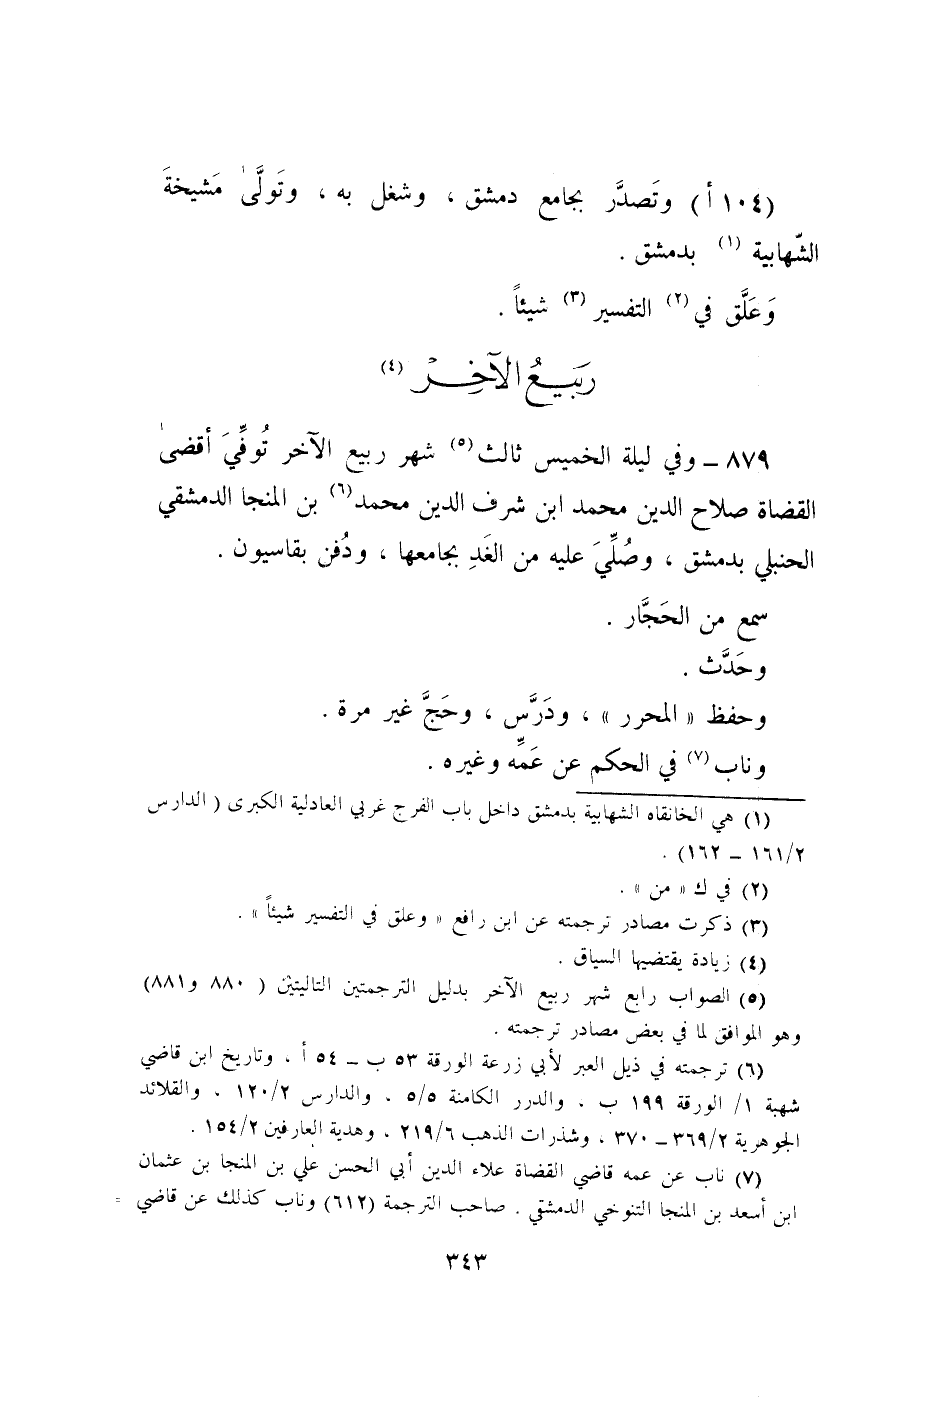 (١٠٤ أ) وتَصدَّر بجامع دمشق ، وشغل به ، وتَولَّىٰ مَشيخةَ
الشّهابية (١) بدمشق .
وَعَلَّق في (٢) التفسير (٣) شيئاً .
رَبيعُ الآخِر (٤)
٨٧٩ ــ وفي ليلة الخميس ثالث (٥) شهر ربيع الآخر تُوفِّيَ أقضىٰ
القضاة صلاح الدين محمد ابن شرف الدين محمد (٦) بن المنجا الدمشقي
الحنبلي بدمشق ، وصُلِّيَ عليه من الغَدِ بجامعها ، ودُفن بقاسيون .
سمع من الحَجَّار .
وحَدَّث .
وحفظ « المحرر » ، ودَرَّس ، وحَجَّ غير مرة .
وناب (٧) في الحكم عن عَمِّه وغيره .
(١) هي الخانقاه الشهابية بدمشق داخل باب الفرج غربي العادلية الكبرى ( الدارس
١٦١/٢ ــ ١٦٢) .
(٢) في ك « من » .
(٣) ذكرت مصادر ترجمته عن ابن رافع « وعلق في التفسير شيئاً » .
(٤) زيادة يقتضيها السياق .
(٥) الصواب رابع شهر ربيع الآخر بدليل الترجمتين التاليتين ( ٨٨٠ و٨٨١)
وهو الموافق لما في بعض مصادر ترجمته .
(٦) ترجمته في ذيل العبر لأبي زرعة الورقة ٥٣ ب ــ ٥٤ أ ، وتاريخ ابن قاضي
شهبة ١/ الورقة ١٩٩ ب ، والدرر الكامنة ٥/٥ ، والدارس ١٢٠/٢ ، والقلائد
الجوهرية ٣٦٩/٢ ــ ٣٧٠ ، وشذرات الذهب ٢١٩/٦ ، وهدية العارفين ١٥٤/٢ .
(٧) ناب عن عمه قاضي القضاة علاء الدين أبي الحسن علي بن المنجا بن عثمان
ابن أسعد بن المنجا التنوخي الدمشقي . صاحب الترجمة (٦١٢) وناب كذلك عن قاضي =
٣٤٣